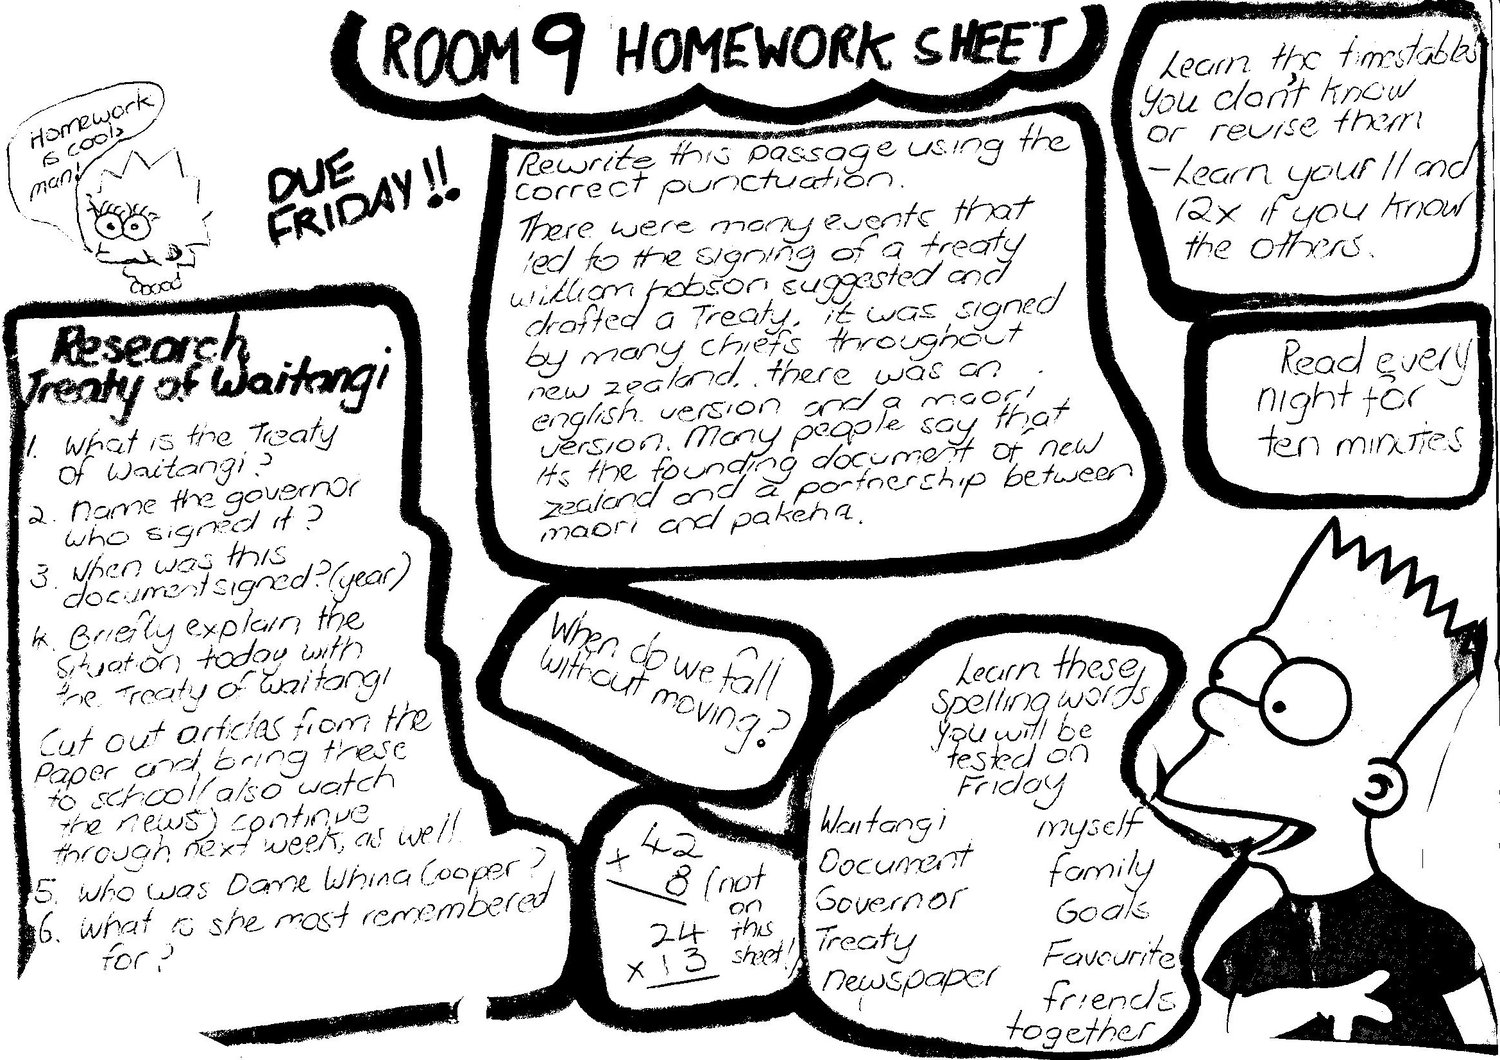 ROOM 9 HOMEWORK SHEET
Homework
is cool,
man!
DUE
FRIDAY!!
Research
Treaty of Waitangi
1. What is the Treaty
of Waitangi?
2. Name the governor
who signed it?
3. When was this
document signed? (year)
4. Briefly explain the
situation today with
the Treaty of Waitangi
Cut out articles from the
Paper and bring these
to school (also watch
the news) continue
through next week, as well.
5. Who was Dame Whina Cooper?
6. What is she most remembered
for?
Rewrite this passage using the
correct punctuation.
There were many events that
led to the signing of a treaty
william hobson suggested and
drafted a Treaty. it was signed
by many chiefs throughout
new zealand. there was an
english version and a maori
version. Many people say that
its the founding document of new
zealand and a partnership between
maori and pakeha.
Learn the timestables
you don't know
or revise them
- Learn your 11 and
12x if you know
the others.
Read every
night for
ten minutes
When do we fall
without moving?
42
x 8 (not
on
this
sheet!)
24
x 13
Learn these
spelling words
you will be
tested on
Friday
Waitangi myself
Document family
Governor Goals
Treaty Favourite
newspaper friends
together